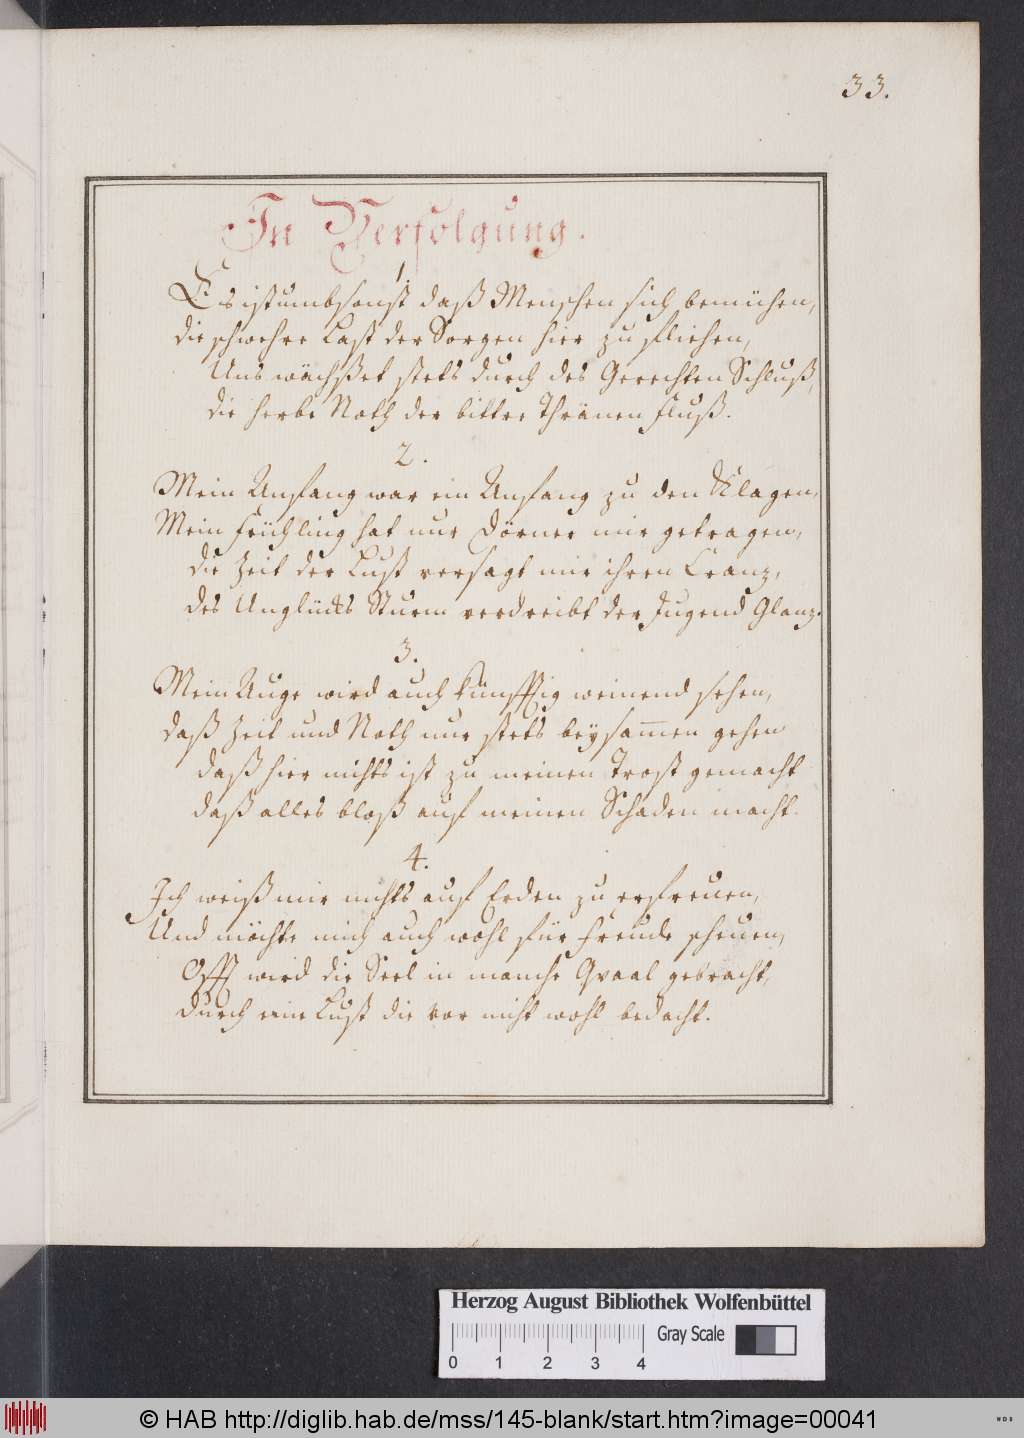 33.
In Verfolgung.
1.
Es ist umbsonst daß Menschen sich bemühen,
die schwehre Last der Sorgen hier zu fliehen,
Uns wächßet stets durch des Gerechten Schluß,
die herbe Noth der bittre Thränen Fluß.
2.
Mein Anfang war ein Anfang zu den Klagen,
Mein Frühling hat nur Dörner mir getragen,
die Zeit der Lust versagt mir ihren Cranz,
des Unglücks Sturm verdreibt der Jugend Glanz.
3.
Mein Auge wird auch künfftig weinend sehen,
daß Zeit und Noth nur stets beysam̅en gehen
daß hier nichts ist zu meinen Trost gemacht
daß alles bloß auf meinen Schaden wacht.
4.
Ich weiß mir nichts auf Erden zu erfreuen,
Und möchte mich auch wohl für Freude scheuen,
Offt wird die Seel in manche Qvaal gebracht,
durch eine Lust die vor nicht wohl bedacht.
Herzog August Bibliothek Wolfenbüttel
Gray Scale
0 1 2 3 4
© HAB http://diglib.hab.de/mss/145-blank/start.htm?image=00041